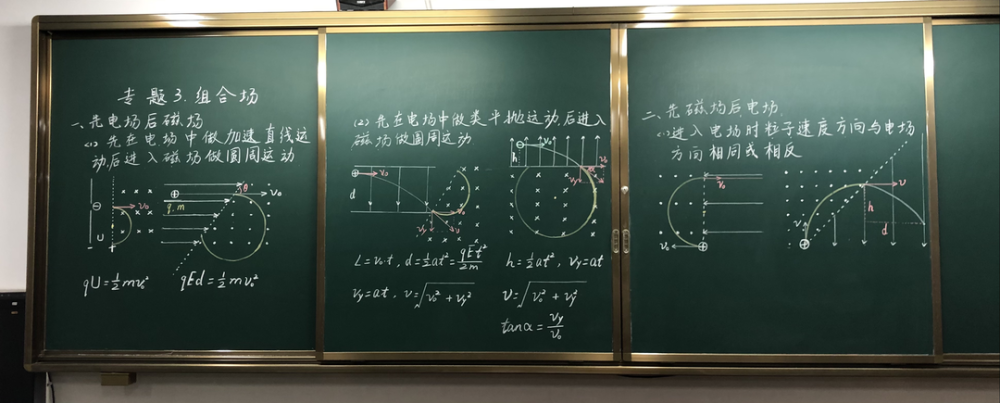 专题3.组合场
一、先电场后磁场
(1) 先在电场中做加速直线运
动,后进入磁场做圆周运动
U
v₀
q.m
θ
v₀
qU=½mv₀²
qEd=½mv₀²
(2) 先在电场中做类平抛运动,后进入
磁场做圆周运动
v₀
d
v₀
vy
v
h
v₀
v₀
vy
L=v₀·t, d=½at²=qEt²/2m
vy=at. v=√(v₀²+vy²)
h=½at², vy=at
v=√(v₀²+vy²)
tanα=vy/v₀
二、先磁场后电场.
(1) 进入电场时粒子速度方向与电场
方向相同或相反
v₀
v₀
v
h
d
v